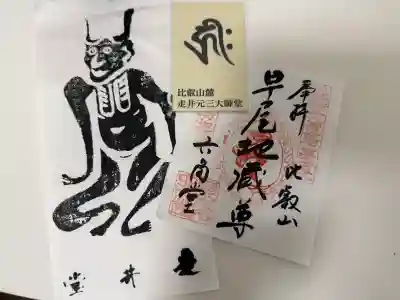 比叡山麓
走井元三大師堂
奉拝 比叡山
早尾地蔵尊
六角堂
走井堂